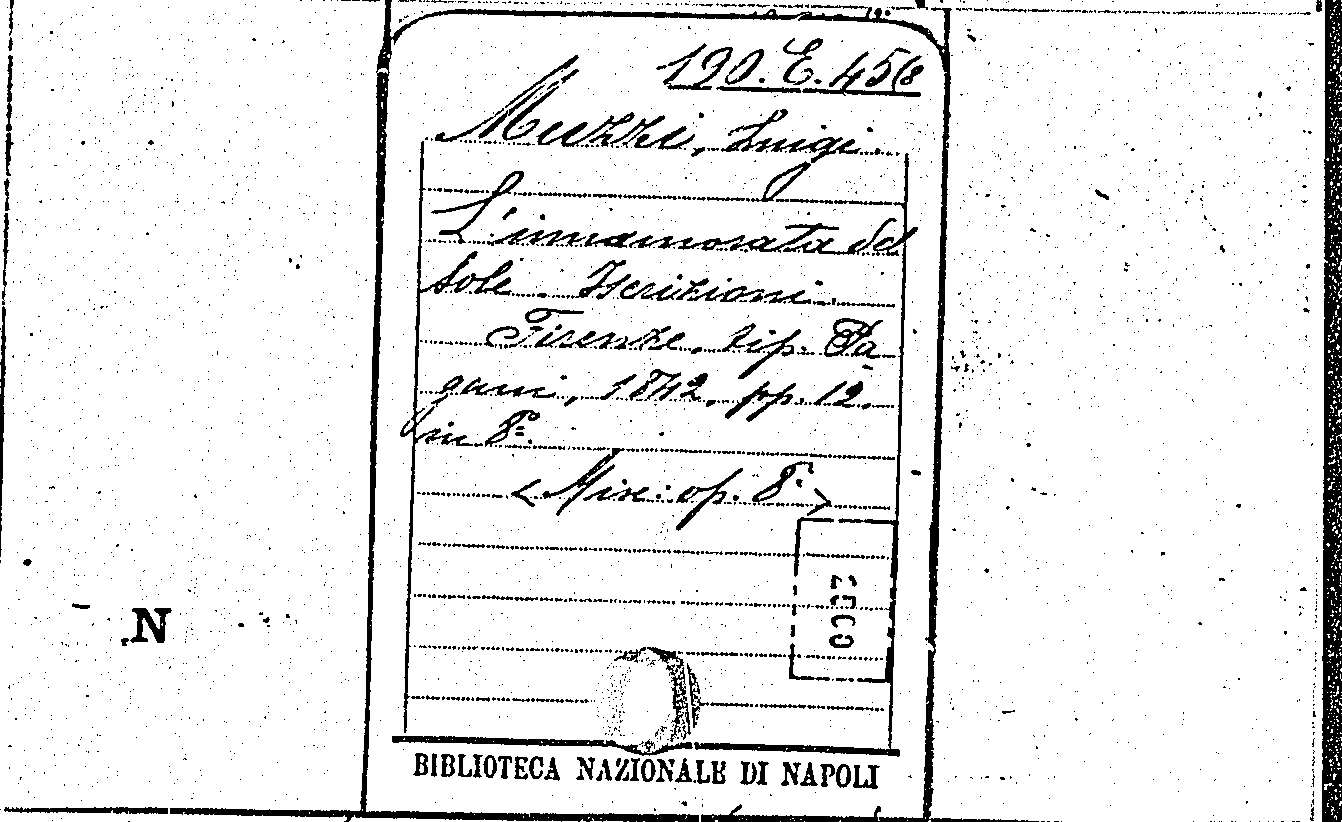 190.E.456
Muzzi, Luigi.
L'innamorata del
sole. Iscrizioni.
Firenze, tip. Pa
gani, 1842, pp. 12.
in 8º.
<Misc: op. 8º>
N
BIBLIOTECA NAZIONALE DI NAPOLI